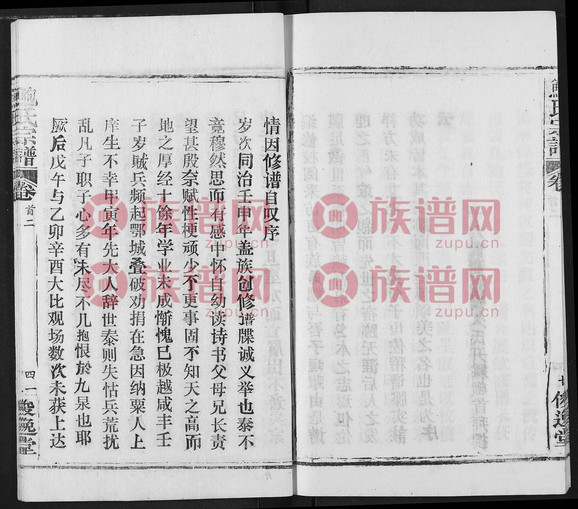 情因修谱自叹序
岁次同治壬申年盖族创修谱牒诚义举也泰不
竟穆然思而有感中怀自幼读诗书父母兄长
望甚殷奈赋性梗顽少不更事固不知天之高而
地之厚经十馀年学业未成惭愧已极越咸丰壬
子岁贼兵频起鄂城叠破劝捐在急因纳粟人上
庠生不幸甲寅年先大人辞世泰则失怙兵荒扰
乱凡子职子心多有未尽不几抱恨於九泉也耶
厥后戊午与乙卯辛酉大比观场数次未获上达
鲍氏宗谱
卷
首二
四一
俊逸堂
鲍氏宗谱
卷
俊逸堂
族谱网
zupu.cn
族谱网
zupu.cn
族谱网
zupu.cn
族谱网
zupu.cn